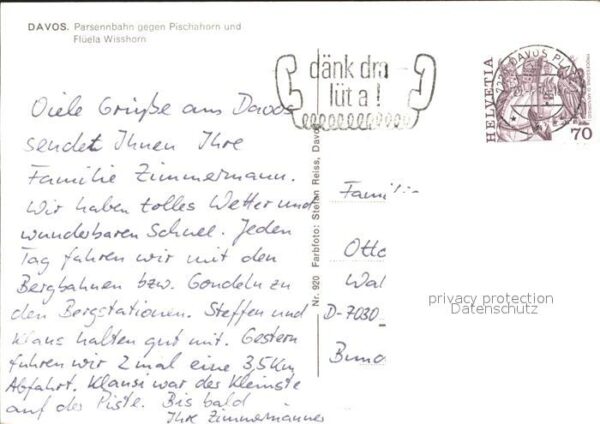 DAVOS. Parsennbahn gegen Pischahorn und
Flüela Wisshorn
dänk dra
lüt a!
HELVETIA
70
DAVOS PLATZ
Viele Grüße aus Davos
sendet Ihnen Ihre
Familie Zimmermann.
Wir haben tolles Wetter und
wunderbaren Schnee. Jeden
Tag fahren wir mit den
Bergbahnen bzw. Gondeln zu
den Bergstationen. Steffen und
Klaus halten gut mit. Gestern
fuhren wir 2 mal eine 3,5 Km
Abfahrt. Klausi war der Kleinste
auf der Piste. Bis bald
Ihre Zimmermänner
Nr. 920 Farbfoto: Stefan Reiss, Davos
Famili
Otto
Wal
D-7030
privacy protection
Datenschutz